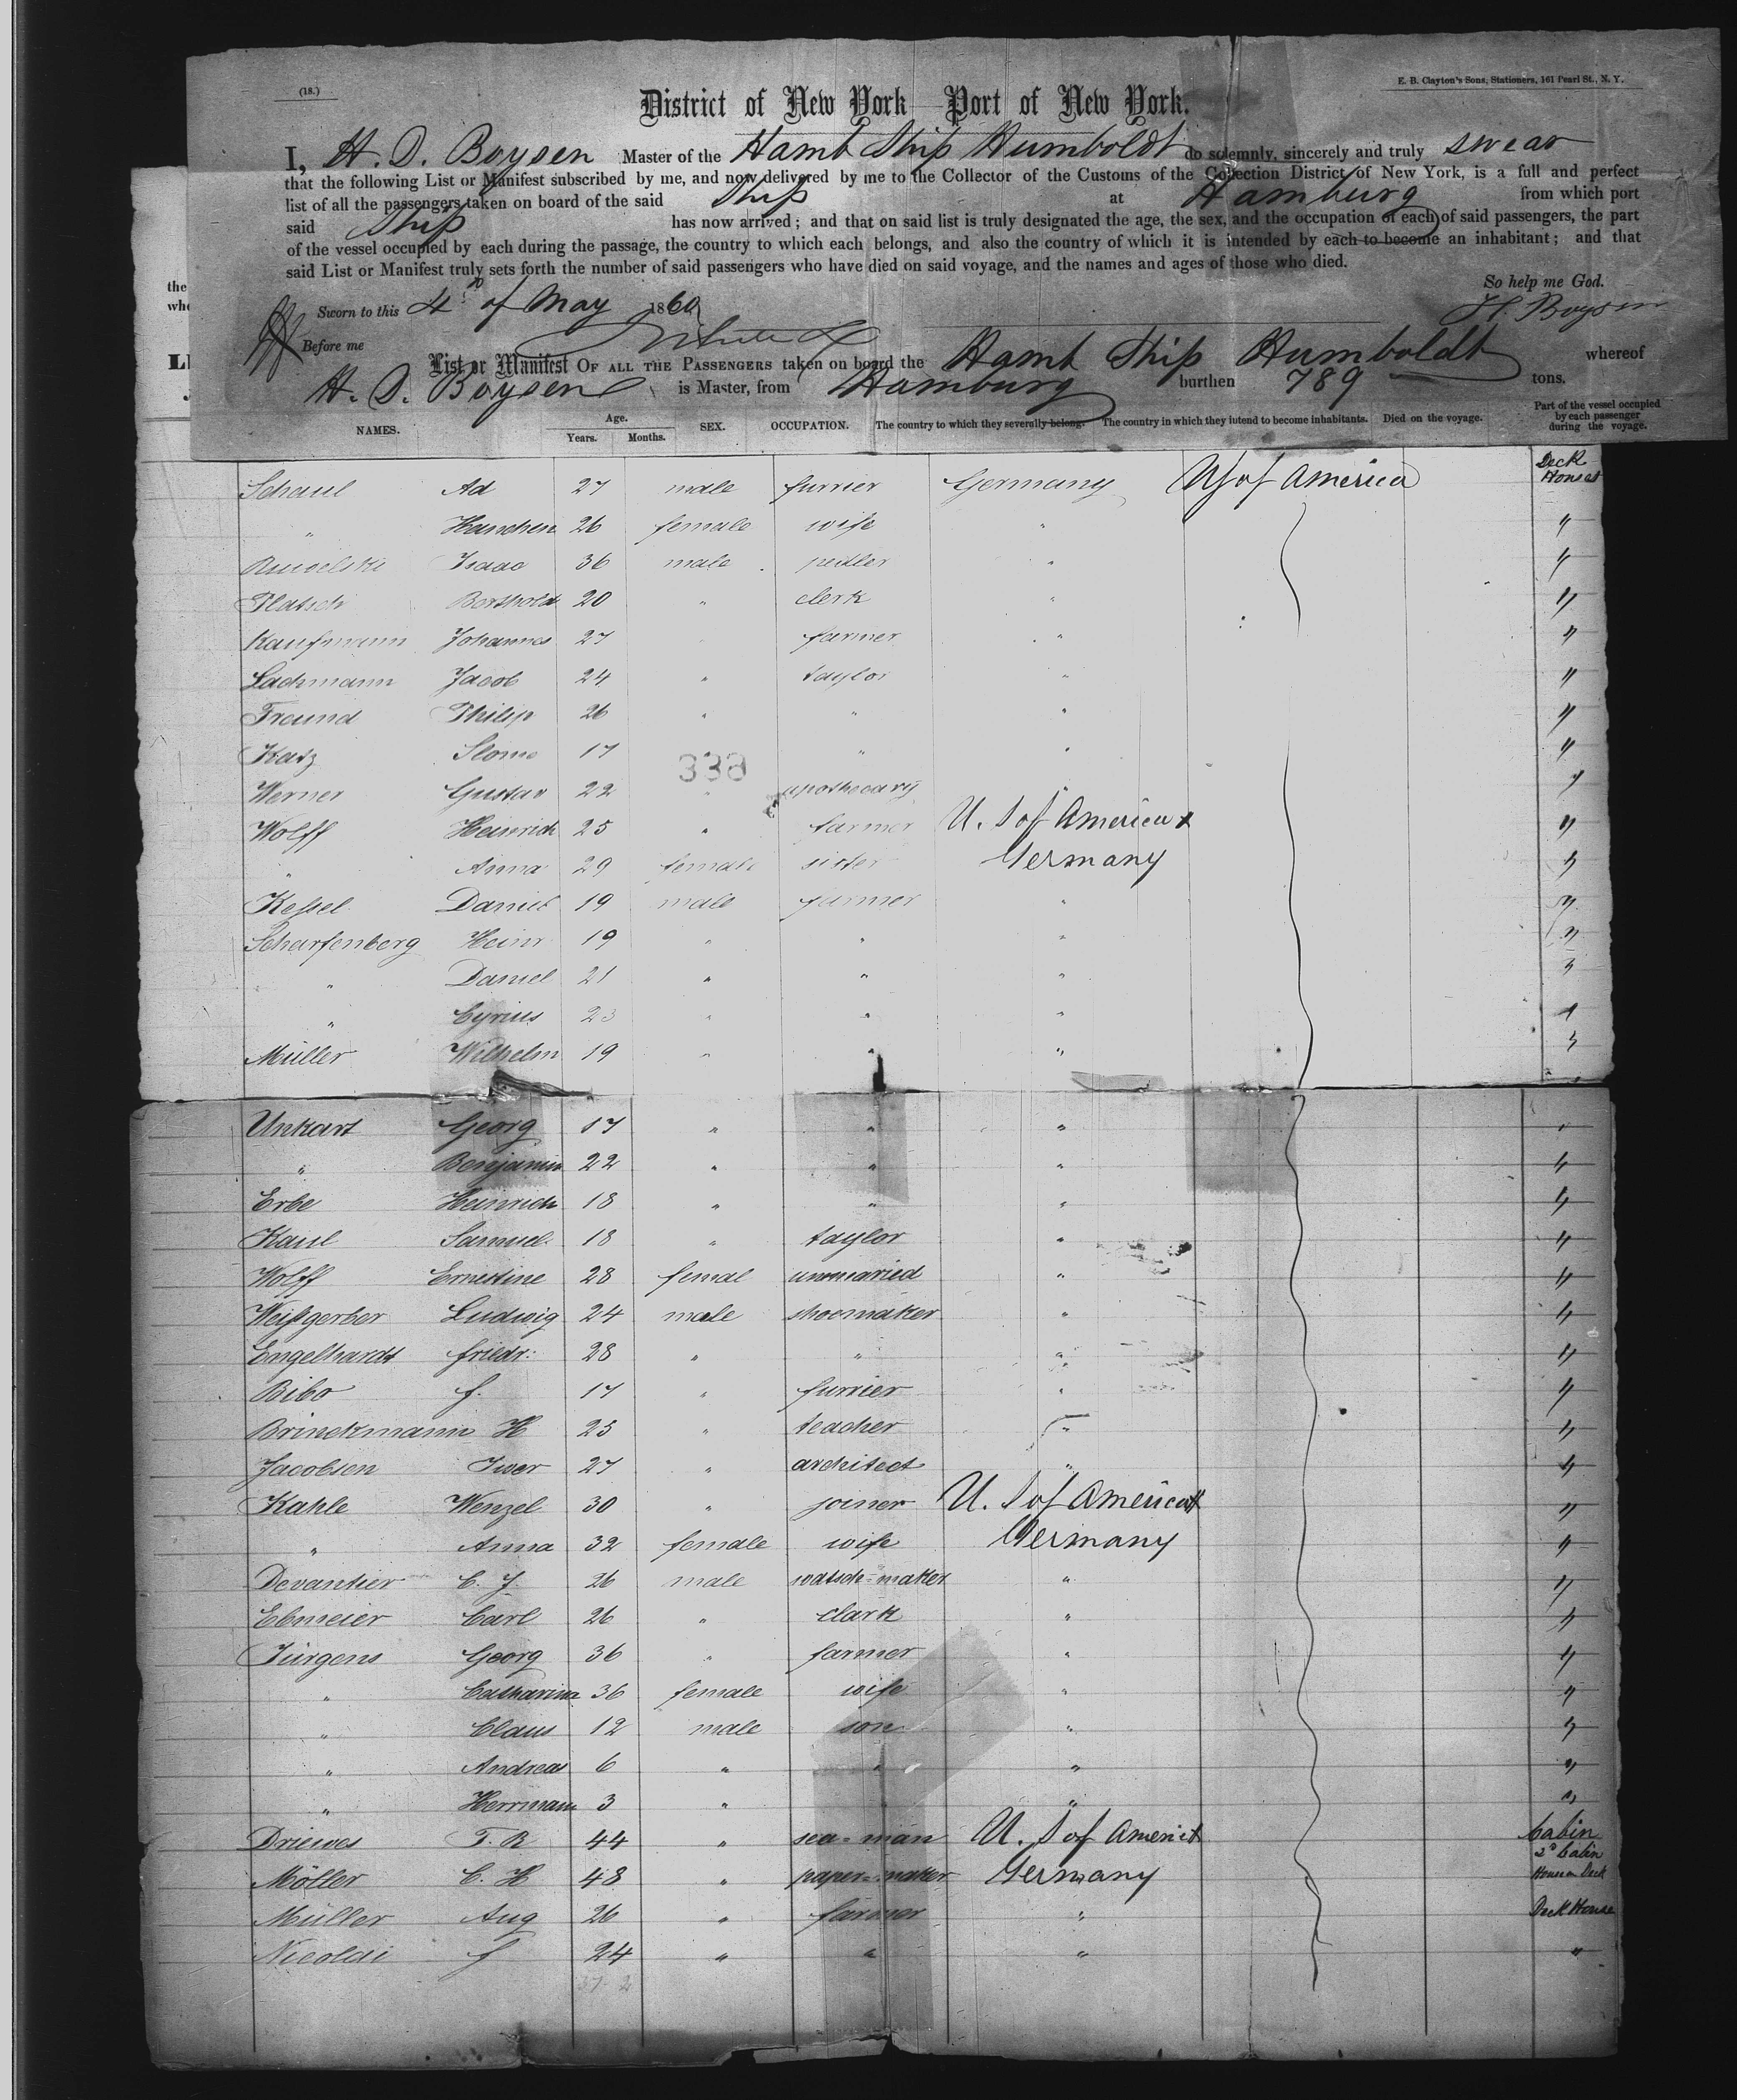 (18.)
E. B. Clayton's Sons, Stationers, 161 Pearl St., N. Y.
District of New York Port of New York.
I, H. D. Boysen Master of the Hamb Ship Humboldt do solemnly, sincerely and truly swear
that the following List or Manifest subscribed by me, and now delivered by me to the Collector of the Customs of the Collection District of New York, is a full and perfect
list of all the passengers taken on board of the said Ship at Hamburg from which port
said Ship has now arrived; and that on said list is truly designated the age, the sex, and the occupation of each of said passengers, the part
of the vessel occupied by each during the passage, the country to which each belongs, and also the country of which it is intended by each to become an inhabitant; and that
said List or Manifest truly sets forth the number of said passengers who have died on said voyage, and the names and ages of those who died.
So help me God.
Sworn to this 4th of May 1860
H. Boysen
Before me
List or Manifest OF ALL THE PASSENGERS taken on board the Hamb Ship Humboldt whereof
H. D. Boysen is Master, from Hamburg burthen 789 tons.
NAMES. Age. Years. Months. SEX. OCCUPATION. The country to which they severally belong. The country in which they intend to become inhabitants. Died on the voyage. Part of the vessel occupied by each passenger during the voyage.
Schaul Ad 27 male furrier Germany US of America Deck Houses
" Hanchen 26 female wife " "
Isaac 36 male pedler " "
Platsch Berthold 20 " clerk " "
Kaufmann Johannes 27 farmer " "
Lachmann Jacob 24 " taylor " "
Freund Philip 26 " " " "
Katz Slome 17 " " "
338
Werner Gustav 22 " apothecary "
Wolff Heinrich 25 " farmer U. S of America "
" Anna 29 female sister Germany "
Keſsel Daniel 19 male farmer " "
Scharfenberg Heinr 19 " " " "
" Daniel 21 " " " "
" Cyrius 23 " " " "
Müller Wilhelm 19 " " " "
Unkart Georg 17 " " " "
" Benjamin 22 " " " "
Erbe Heinrich 18 " " " "
Kaul Samuel 18 " taylor " "
Wolff Ernestine 28 femal unmaried " "
Weiſsgerber Ludwig 24 male shoemaker " "
Engelhardt friedr: 28 " " " "
Bibo f. 17 " furrier " "
Brinckmann H 25 " teacher " "
Jacobsen Iwer 27 " architect " "
Kahle Wenzel 30 " joiner U. S of America "
" Anna 32 female wife Germany "
Devantier C. J. 26 male watsch=maker " "
Ebmeier Carl 26 " clark " "
Jürgens Georg 36 " farmer " "
" Catharina 36 female wife " "
" Claus 12 male son " "
" Andreas 6 " " " "
" Herrmann 3 " " "
Driewes T. R 44 " sea=man U. S of Americ Cabin
Möller C. H 48 " paper=maker Germany 2d Cabin House on Deck
Müller Aug 26 " farmer " Deck House
Nicolai f 24 " " " "